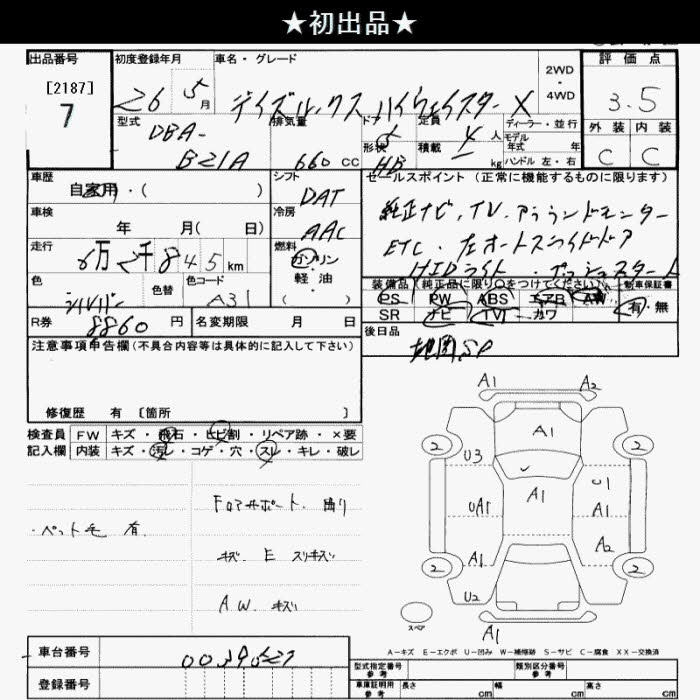 ★初出品★
出品番号
[2187]
7
初度登録年月
26 5 月
車名・グレード
デイズルックス ハイウェイスター X
2WD
・
4WD
評価点
3.5
外装 内装
C C
型式
DBA-
B21A
排気量
660 CC
ドア
5
形状
HB
定員
4 人
積載
kg
ディーラー・並行
モデル
年式 年
ハンドル 左・右
車歴
自家用・( )
車検
年 月( 日)
走行
845 km
色
シルバー
色替
色コード
A31
シフト
DAT
冷房
AAC
燃料
ガソリン
・
軽油
( )
セールスポイント (正常に機能するものに限ります)
純正ナビ、TV、アラウンドモニター
ETC・左オートスライドドア
HIDライト・プッシュスタート
装備品(純正品に限り〇をつけてください)
PS PW ABS エアB AW
SR ナビ TV カワ
新車保証書
有・無
R券
8860 円
名変期限 月 日
後日品
地図SD
注意事項申告欄(不具合内容等は具体的に記入して下さい)
修復歴 有 〔箇所 〕
検査員 FW キズ・飛石・ヒビ割・リペア跡・×要
記入欄 内装 キズ・汚レ・コゲ・穴・スレ・キレ・破レ
・ペット毛 有
Fロアサポート 曲り
キズ E スリキズ
A.W. キズ
A1 A2
A1
2 2
U3
A1
U1
A1
A1
A2
2 2
U2
A1
スペア
A－キズ E－エクボ U－凹み W－補修跡 S－サビ C－腐食 XX－交換済
車台番号
登録番号
型式指定番号
参考
類別区分番号
参考
車庫証明用
参考
長さ cm 幅 cm 高さ cm